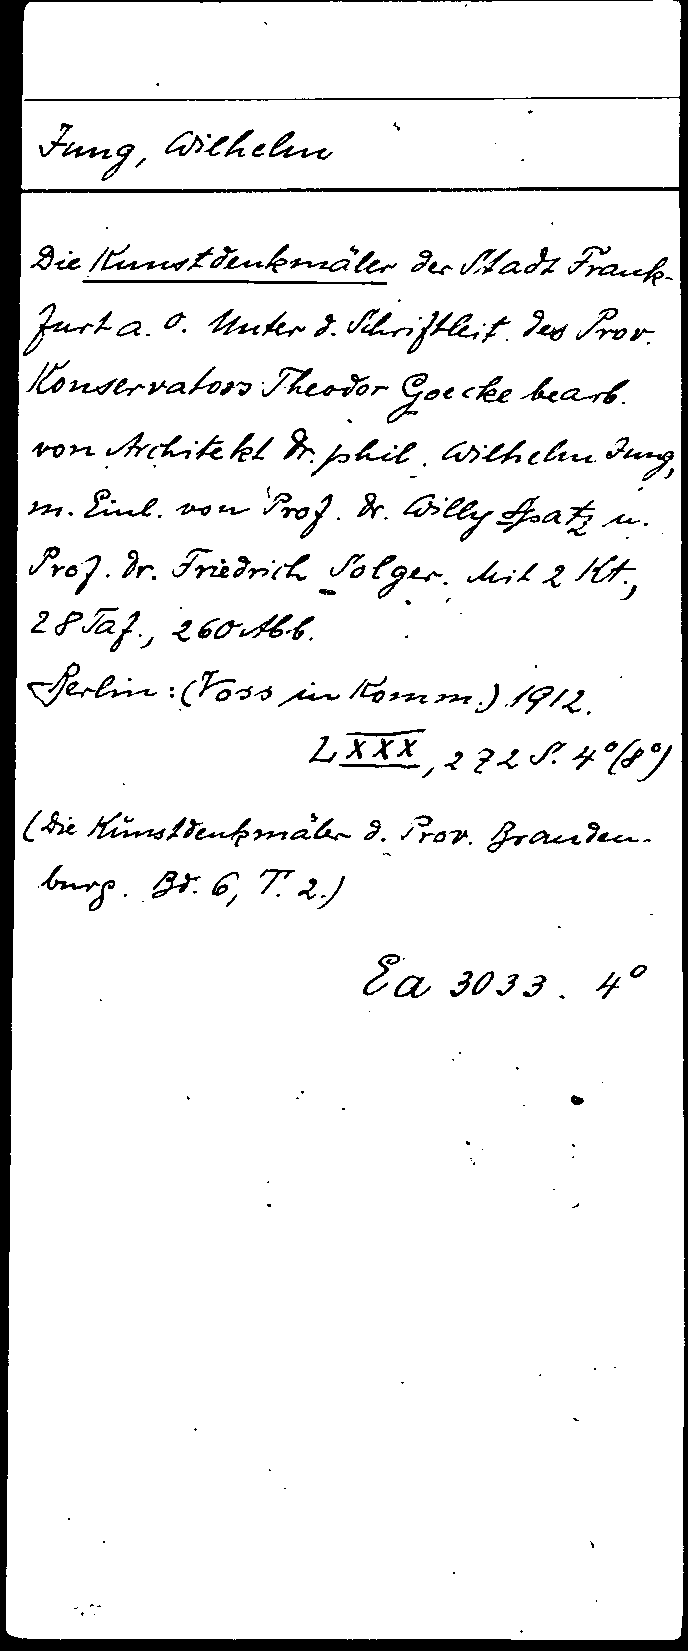 Jung, Wilhelm
Die Kunstdenkmäler der Stadt Frank-
furt a. O. Unter d. Schriftleit. des Prov.
Konservators Theodor Goecke bearb.
von Architekt Dr. phil. Wilhelm Jung,
m. Einl. von Prof. Dr. Willy Spatz u.
Prof. Dr. Friedrich Solger. Mit 2 Kt.,
28 Taf., 260 Abb.
Berlin: (Voss in Komm.) 1912.
LXXX, 272 S. 4° (8°)
(Die Kunstdenkmäler d. Prov. Branden-
burg. Bd. 6, T. 2.)
Ea 3033. 4°